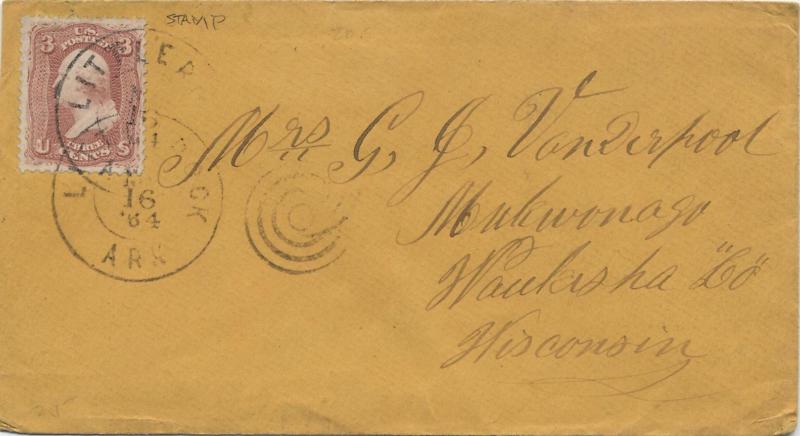 STAMP
3 U.S. POSTAGE 3
U THREE CENTS S
LITTLE ROCK
16
'64
ARK
Mrs G. J. Vanderpool
Mukwonago
Waukesha "Co"
Wisconsin